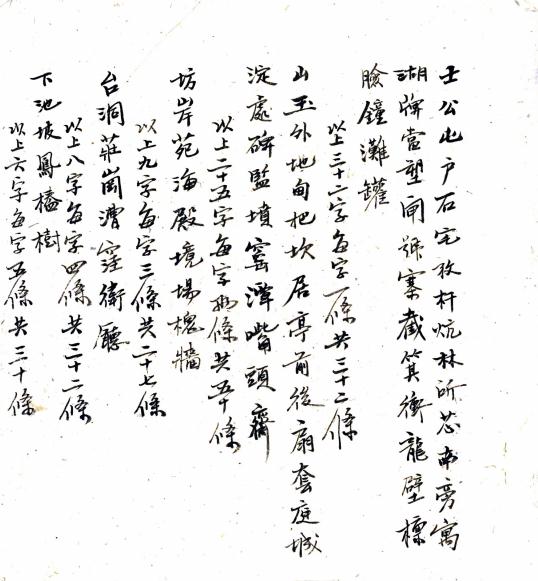 士公屯户石宅孜杆炕林所芯南旁寓
湖牌當塑閘號寨截箕衝龍壁標
臉鐘灘罐
以上三十二字每字一條共三十二條
山玉外地甸杷坎居亭前後廟套庭城
淀處碑監墳窰潭嘴頭齋
以上二十五字每字兩條共五十條
坊岸苑海殿境場槐牆
以上九字每字三條共二十七條
台洞莊崗漕窪衛廳
以上八字每字四條共三十二條
下池坡鳳樁樹
以上六字每字五條共三十條